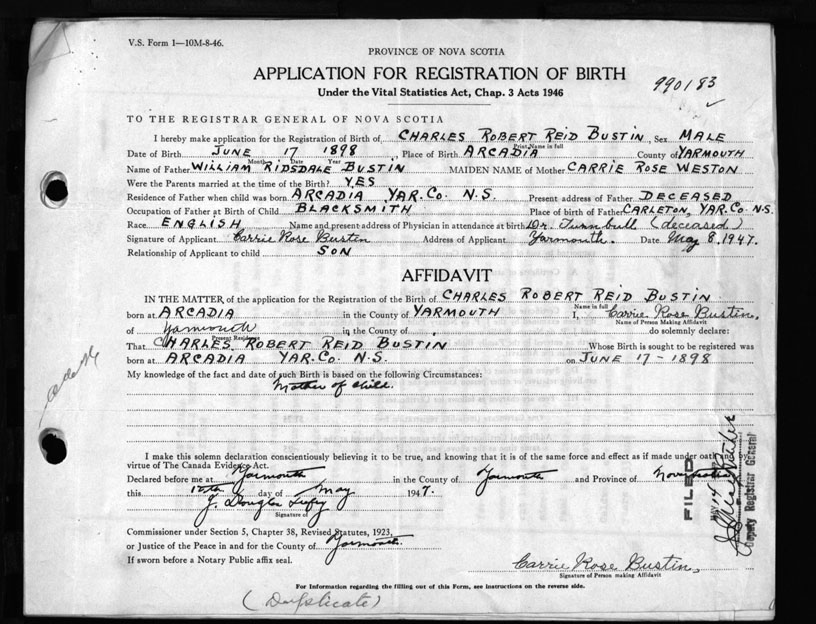 V.S. Form 1—10M-8-46.
PROVINCE OF NOVA SCOTIA
APPLICATION FOR REGISTRATION OF BIRTH
990183
Under the Vital Statistics Act, Chap. 3 Acts 1946
TO THE REGISTRAR GENERAL OF NOVA SCOTIA
I hereby make application for the Registration of Birth of CHARLES ROBERT REID BUSTIN, Sex MALE
Print Name in full
Date of Birth JUNE 17 1898, Place of Birth ARCADIA County of YARMOUTH
Month Date Year
Name of Father WILLIAM RIDSDALE BUSTIN MAIDEN NAME of Mother CARRIE ROSE WESTON
Were the Parents married at the time of the Birth? YES
Residence of Father when child was born ARCADIA YAR. CO. N.S. Present address of Father DECEASED
Occupation of Father at Birth of Child BLACKSMITH Place of birth of Father CARLETON, YAR. CO. N.S.
Race ENGLISH Name and present address of Physician in attendance at birth Dr. Turnbull (deceased)
Signature of Applicant Carrie Rose Bustin Address of Applicant Yarmouth. Date May 8, 1947.
Relationship of Applicant to child SON
AFFIDAVIT
IN THE MATTER of the application for the Registration of the Birth of CHARLES ROBERT REID BUSTIN
Name in full
born at ARCADIA in the County of YARMOUTH I, Carrie Rose Bustin,
Name of Person Making Affidavit
of Yarmouth in the County of do solemnly declare:
Present Residence
That CHARLES ROBERT REID BUSTIN Whose Birth is sought to be registered was
born at ARCADIA YAR. CO. N.S. on JUNE 17-1898
My knowledge of the fact and date of such Birth is based on the following Circumstances:
Mother of child.
I make this solemn declaration conscientiously believing it to be true, and knowing that it is of the same force and effect as if made under oath and by
virtue of The Canada Evidence Act.
Declared before me at Yarmouth in the County of Yarmouth and Province of Nova Scotia
this day of May 1947.
J. Douglas
Signature of
Commissioner under Section 5, Chapter 38, Revised Statutes, 1923,
or Justice of the Peace in and for the County of Yarmouth.
If sworn before a Notary Public affix seal.
Carrie Rose Bustin,
Signature of Person making Affidavit
For Information regarding the filling out of this Form, see instructions on the reverse side.
(Duplicate)
FILED
Deputy Registrar General